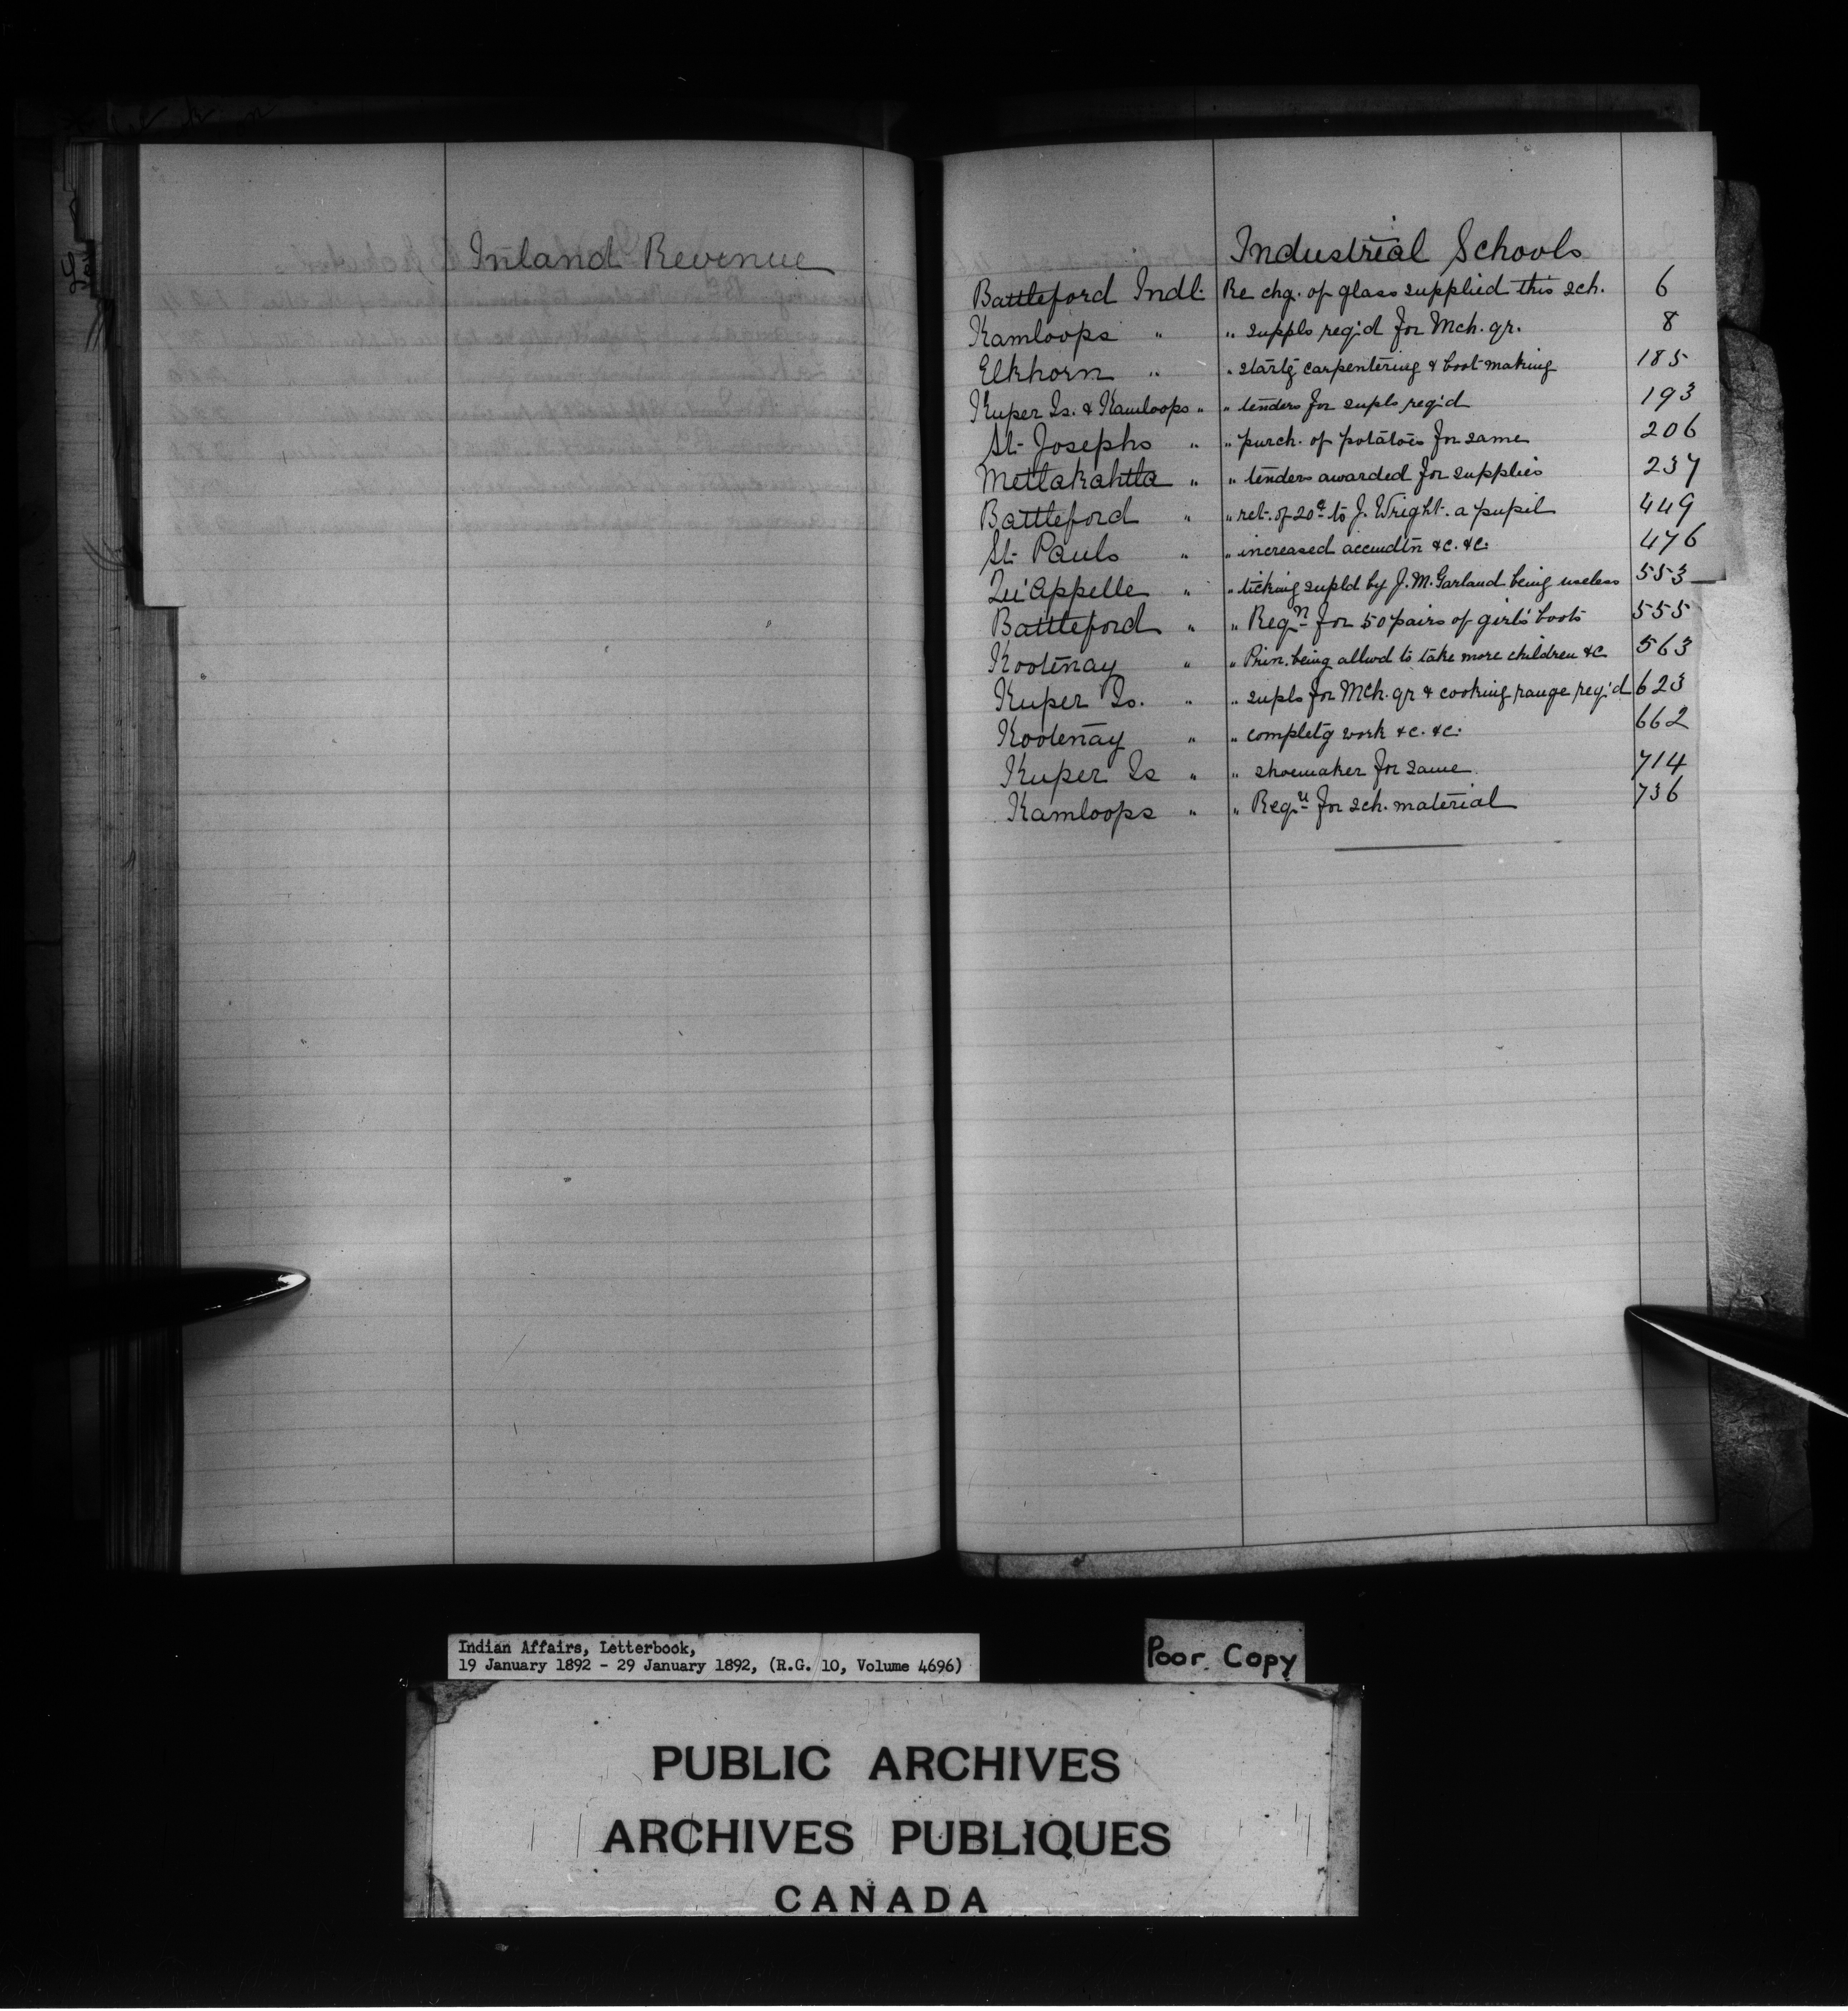 Inland Revenue
Industrial Schools
Battleford Indl. Re chg. of glass supplied this sch. 6
Kamloops " " suppls req'd for Mch. qr. 8
Elkhorn " " startg carpentering & boot making 185
Kuper Is. & Kamloops " " tenders for supls req'd 193
St. Josephs " " purch. of potatoes for same 206
Metlakahtla " " tenders awarded for supplies 237
Battleford " " ret. of 20¢ to J. Wright. a pupil 449
St. Pauls " " increased accmdtn &c. &c. 476
Qu'Appelle " " ticking supld by J. M. Garland being useless 553
Battleford " " Reqn for 50 pairs of girls' boots 555
Kootenay " " Prin. being allwd to take more children &c 563
Kuper Is. " " supls for Mch. qr & cooking range req'd 623
Kootenay " " completg work &c. &c. 662
Kuper Is " " shoemaker for same. 714
Kamloops " " Reqn for sch. material 736
Indian Affairs, Letterbook,
19 January 1892 - 29 January 1892, (R.G. 10, Volume 4696)
Poor Copy
PUBLIC ARCHIVES
ARCHIVES PUBLIQUES
CANADA